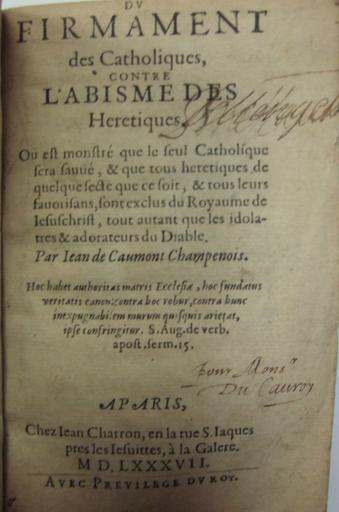 DV
FIRMAMENT
des Catholiques,
CONTRE
L'ABISME DES
Heretiques,
Ou est monstré que le seul Catholique
sera sauué, & que tous heretiques de
quelque secte que ce soit, & tous leurs
fauorisans, sont exclus du Royaume de
Iesuschrist, tout autant que les idola-
tres & adorateurs du Diable.
Par Iean de Caumont Champenois.
Hoc habet authoritas matris Ecclesiæ, hoc fundatus
veritatis canon: contra hoc robur, contra hunc
inexpugnabilem murum quisquis arietat,
ipse confringitur. S. Aug. de verb.
apost. serm. 15.
Pour Monsr
Du Cauroy
A PARIS,
Chez Iean Charron, en la rue S. Iaques
pres les Iesuittes, à la Galere.
M D. LXXXVII.
AVEC PREVILEGE DV ROY.